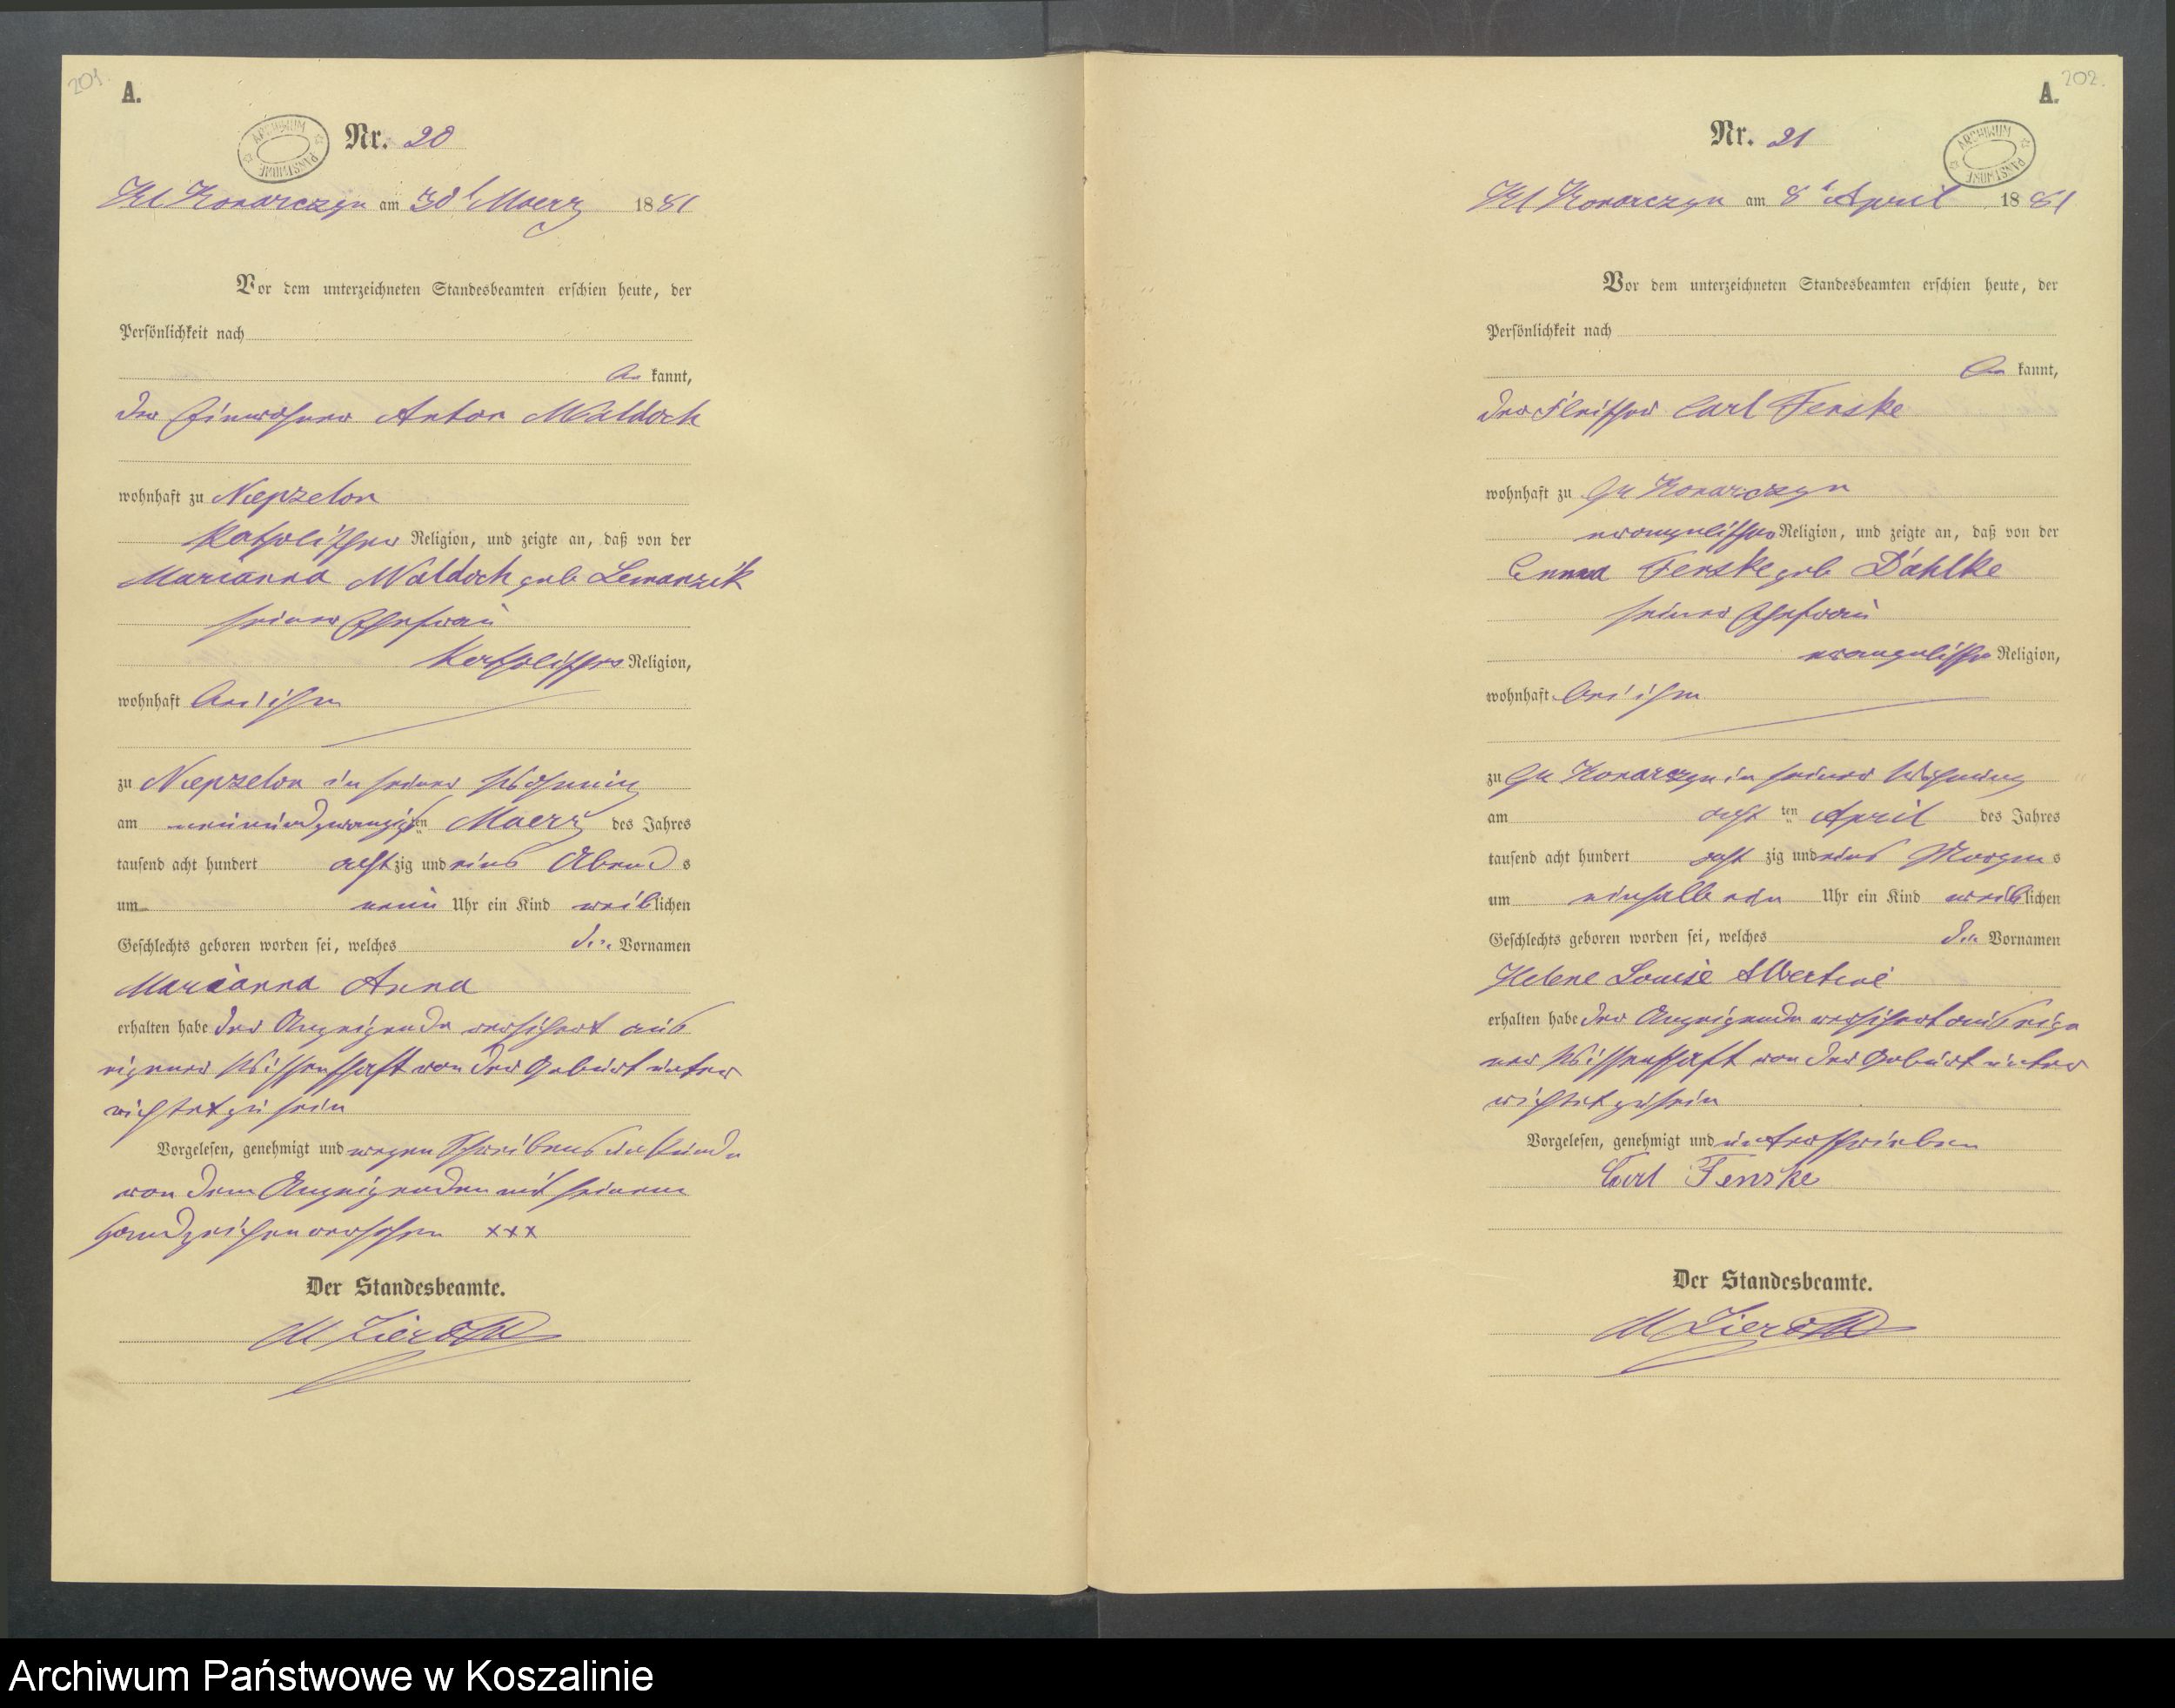 201.
A.
ARCHIWUM PAŃSTWOWE
Nr. 20
Kl Konarczyn am 30t Maerz 1881
Vor dem unterzeichneten Standesbeamten erschien heute, der
Persönlichkeit nach
be kannt,
der Einwohner Anton Waldoch
wohnhaft zu Niepzelon
katholischer Religion, und zeigte an, daß von der
Marianna Waldoch geb Lemanzik
seiner Ehefrau
katholischer Religion,
wohnhaft bei ihm
zu Niepzelon in seiner Wohnung
am neunundzwanzigsten Maerz des Jahres
tausend acht hundert acht zig und eins Abend s
um neun Uhr ein Kind weiblichen
Geschlechts geboren worden sei, welches den Vornamen
Marianna Anna
erhalten habe der Anzeigende versichert aus
eigener Wissenschaft von der Geburt unter
richtet zu sein
Vorgelesen, genehmigt und wegen Schreibens unkunde
von dem Anzeigenden mit seinem
Handzeichen versehen xxx
Der Standesbeamte.
202.
A.
ARCHIWUM PAŃSTWOWE
Nr. 21
Kl Konarczyn am 8t April 1881
Vor dem unterzeichneten Standesbeamten erschien heute, der
Persönlichkeit nach
be kannt,
der Fleischer Carl Fenske
wohnhaft zu Gr Konarczyn
evangelischer Religion, und zeigte an, daß von der
Emma Fenske geb Dahlke
seiner Ehefrau
evangelischer Religion,
wohnhaft bei ihm
zu Gr Konarczyn in seiner Wohnung
am acht ten April des Jahres
tausend acht hundert acht zig und eins Morgen s
um Uhr ein Kind weiblichen
Geschlechts geboren worden sei, welches den Vornamen
Helene Louise Albertine
erhalten habe der Anzeigende versichert aus eige
ner Wissenschaft von der Geburt unter
richtet zu sein
Vorgelesen, genehmigt und unterschrieben
Carl Fenske
Der Standesbeamte.
Archiwum Państwowe w Koszalinie